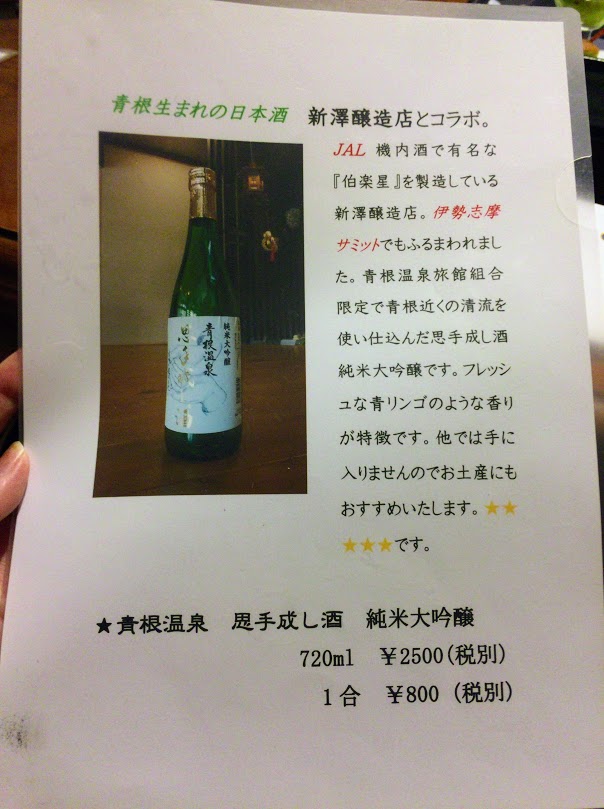 青根生まれの日本酒 新澤醸造店とコラボ。
JAL 機内酒で有名な
『伯楽星』を製造している
新澤醸造店。伊勢志摩
サミットでもふるまわれまし
た。青根温泉旅館組合
限定で青根近くの清流を
使い仕込んだ思手成し酒
純米大吟醸です。フレッシ
ュな青リンゴのような香り
が特徴です。他では手に
入りませんのでお土産にも
おすすめいたします。★★
★★★です。
純米大吟醸
青根温泉
★青根温泉 思手成し酒 純米大吟醸
720ml ￥2500(税別)
1合 ￥800 (税別)